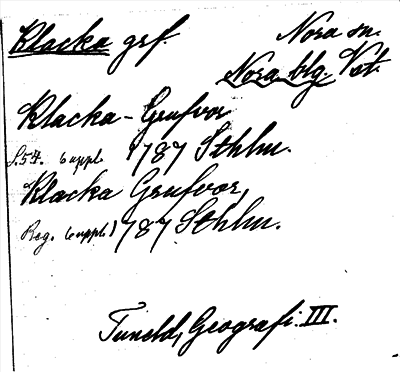 Klacka grf. Nora sn.
Nora blg. Vst.
Klacka-Grufvor
S. 57. 6 uppl. 1787 Sthlm.
Klacka Grufvor,
Reg. 6 uppl) 1787 Sthlm.
Tuneld, Geografi. III.